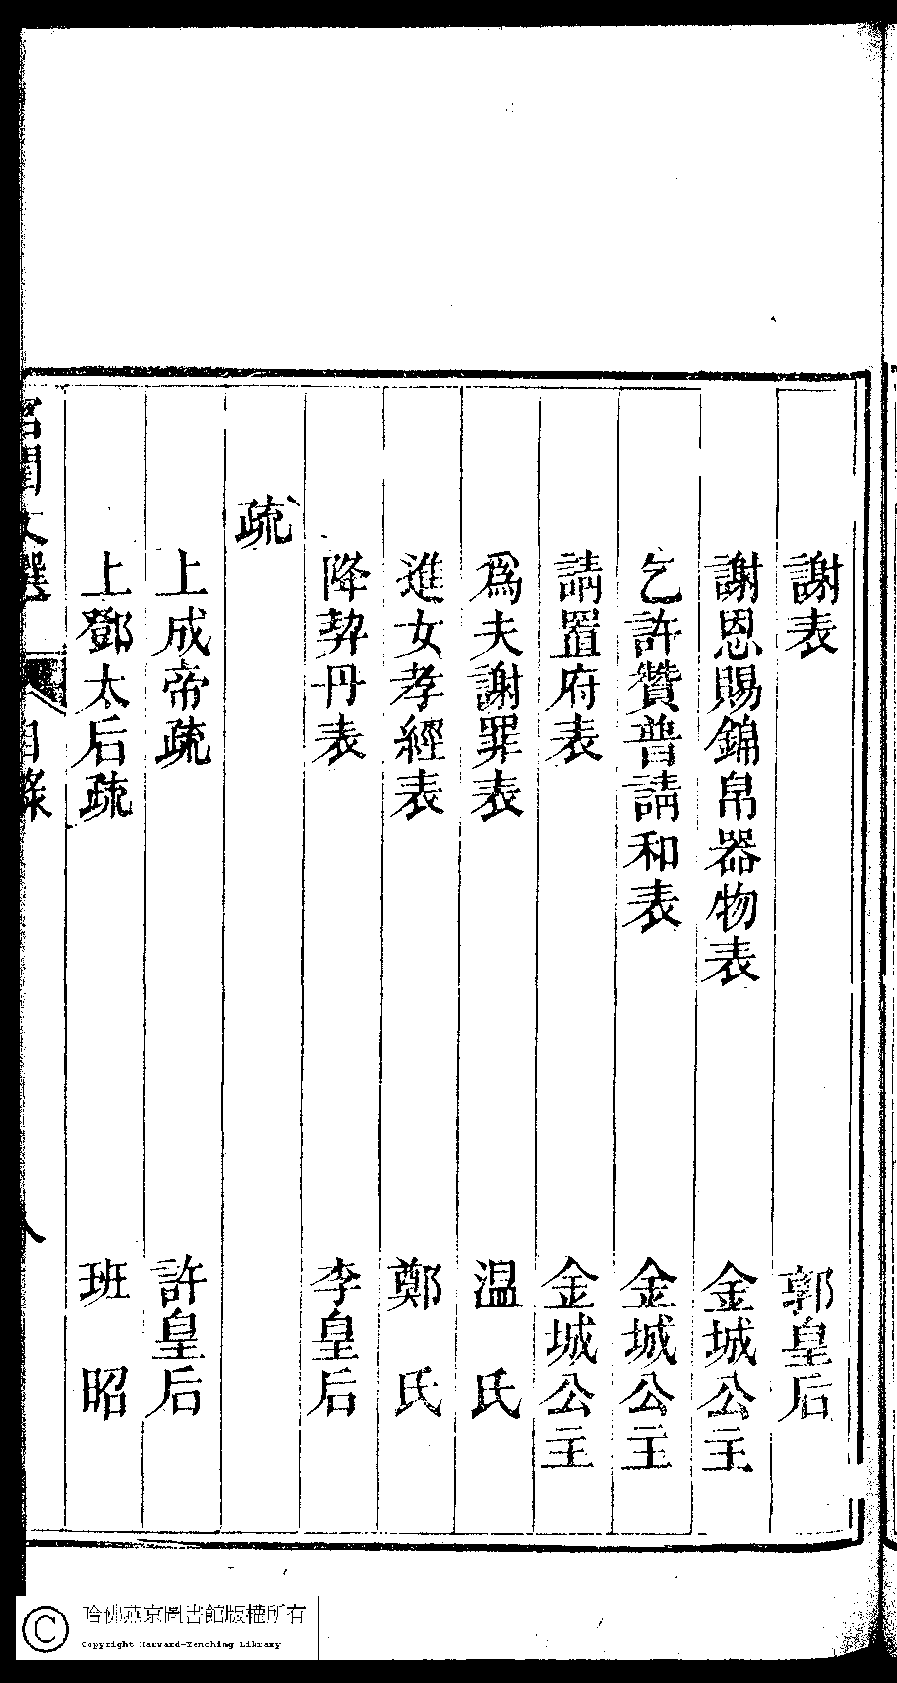 謝表 郭皇后
謝恩賜錦帛器物表 金城公主
乞許贊普請和表 金城公主
請置府表 金城公主
爲夫謝罪表 温氏
進女孝經表 鄭氏
降契丹表 李皇后
疏
上成帝疏 許皇后
上鄧太后疏 班昭
名閨文選 目錄 八
哈佛燕京圖書館版權所有
Copyright Harvard-Yenching Library